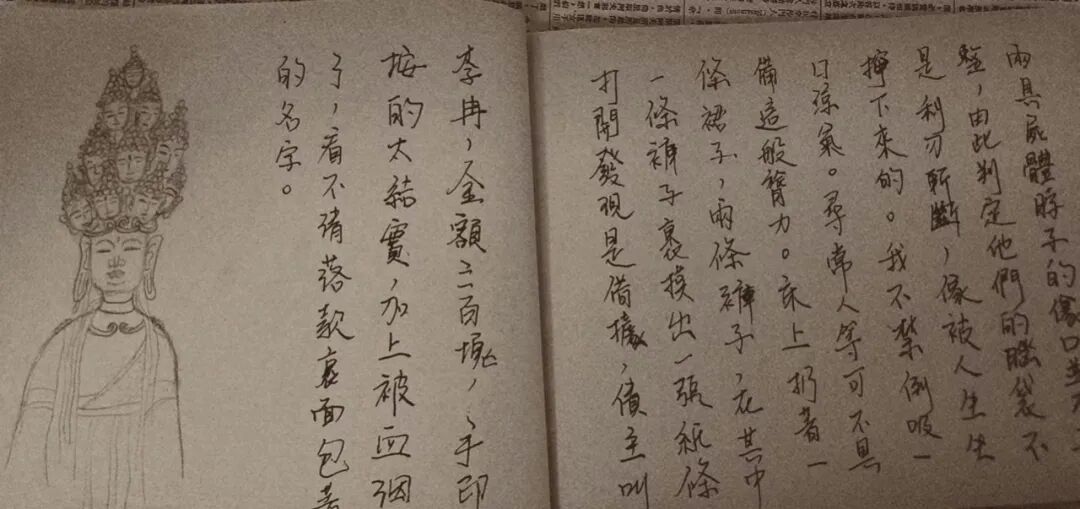 兩具屍體脖子的傷口並不
整，由此判定他們的腦袋不
是利刃斬斷，像被人生生
擰下來的。我不禁倒吸一
口涼氣。尋常人等可不具
備這般臂力。床上扔着一
條裙子，兩條褲子，在其中
一條褲子裏摸出一張紙條
打開發現是借據，債主叫
李冉，金額二百塊，手印
按的太結實，加上被血洇
了，看不清落款裏面包着
的名字。